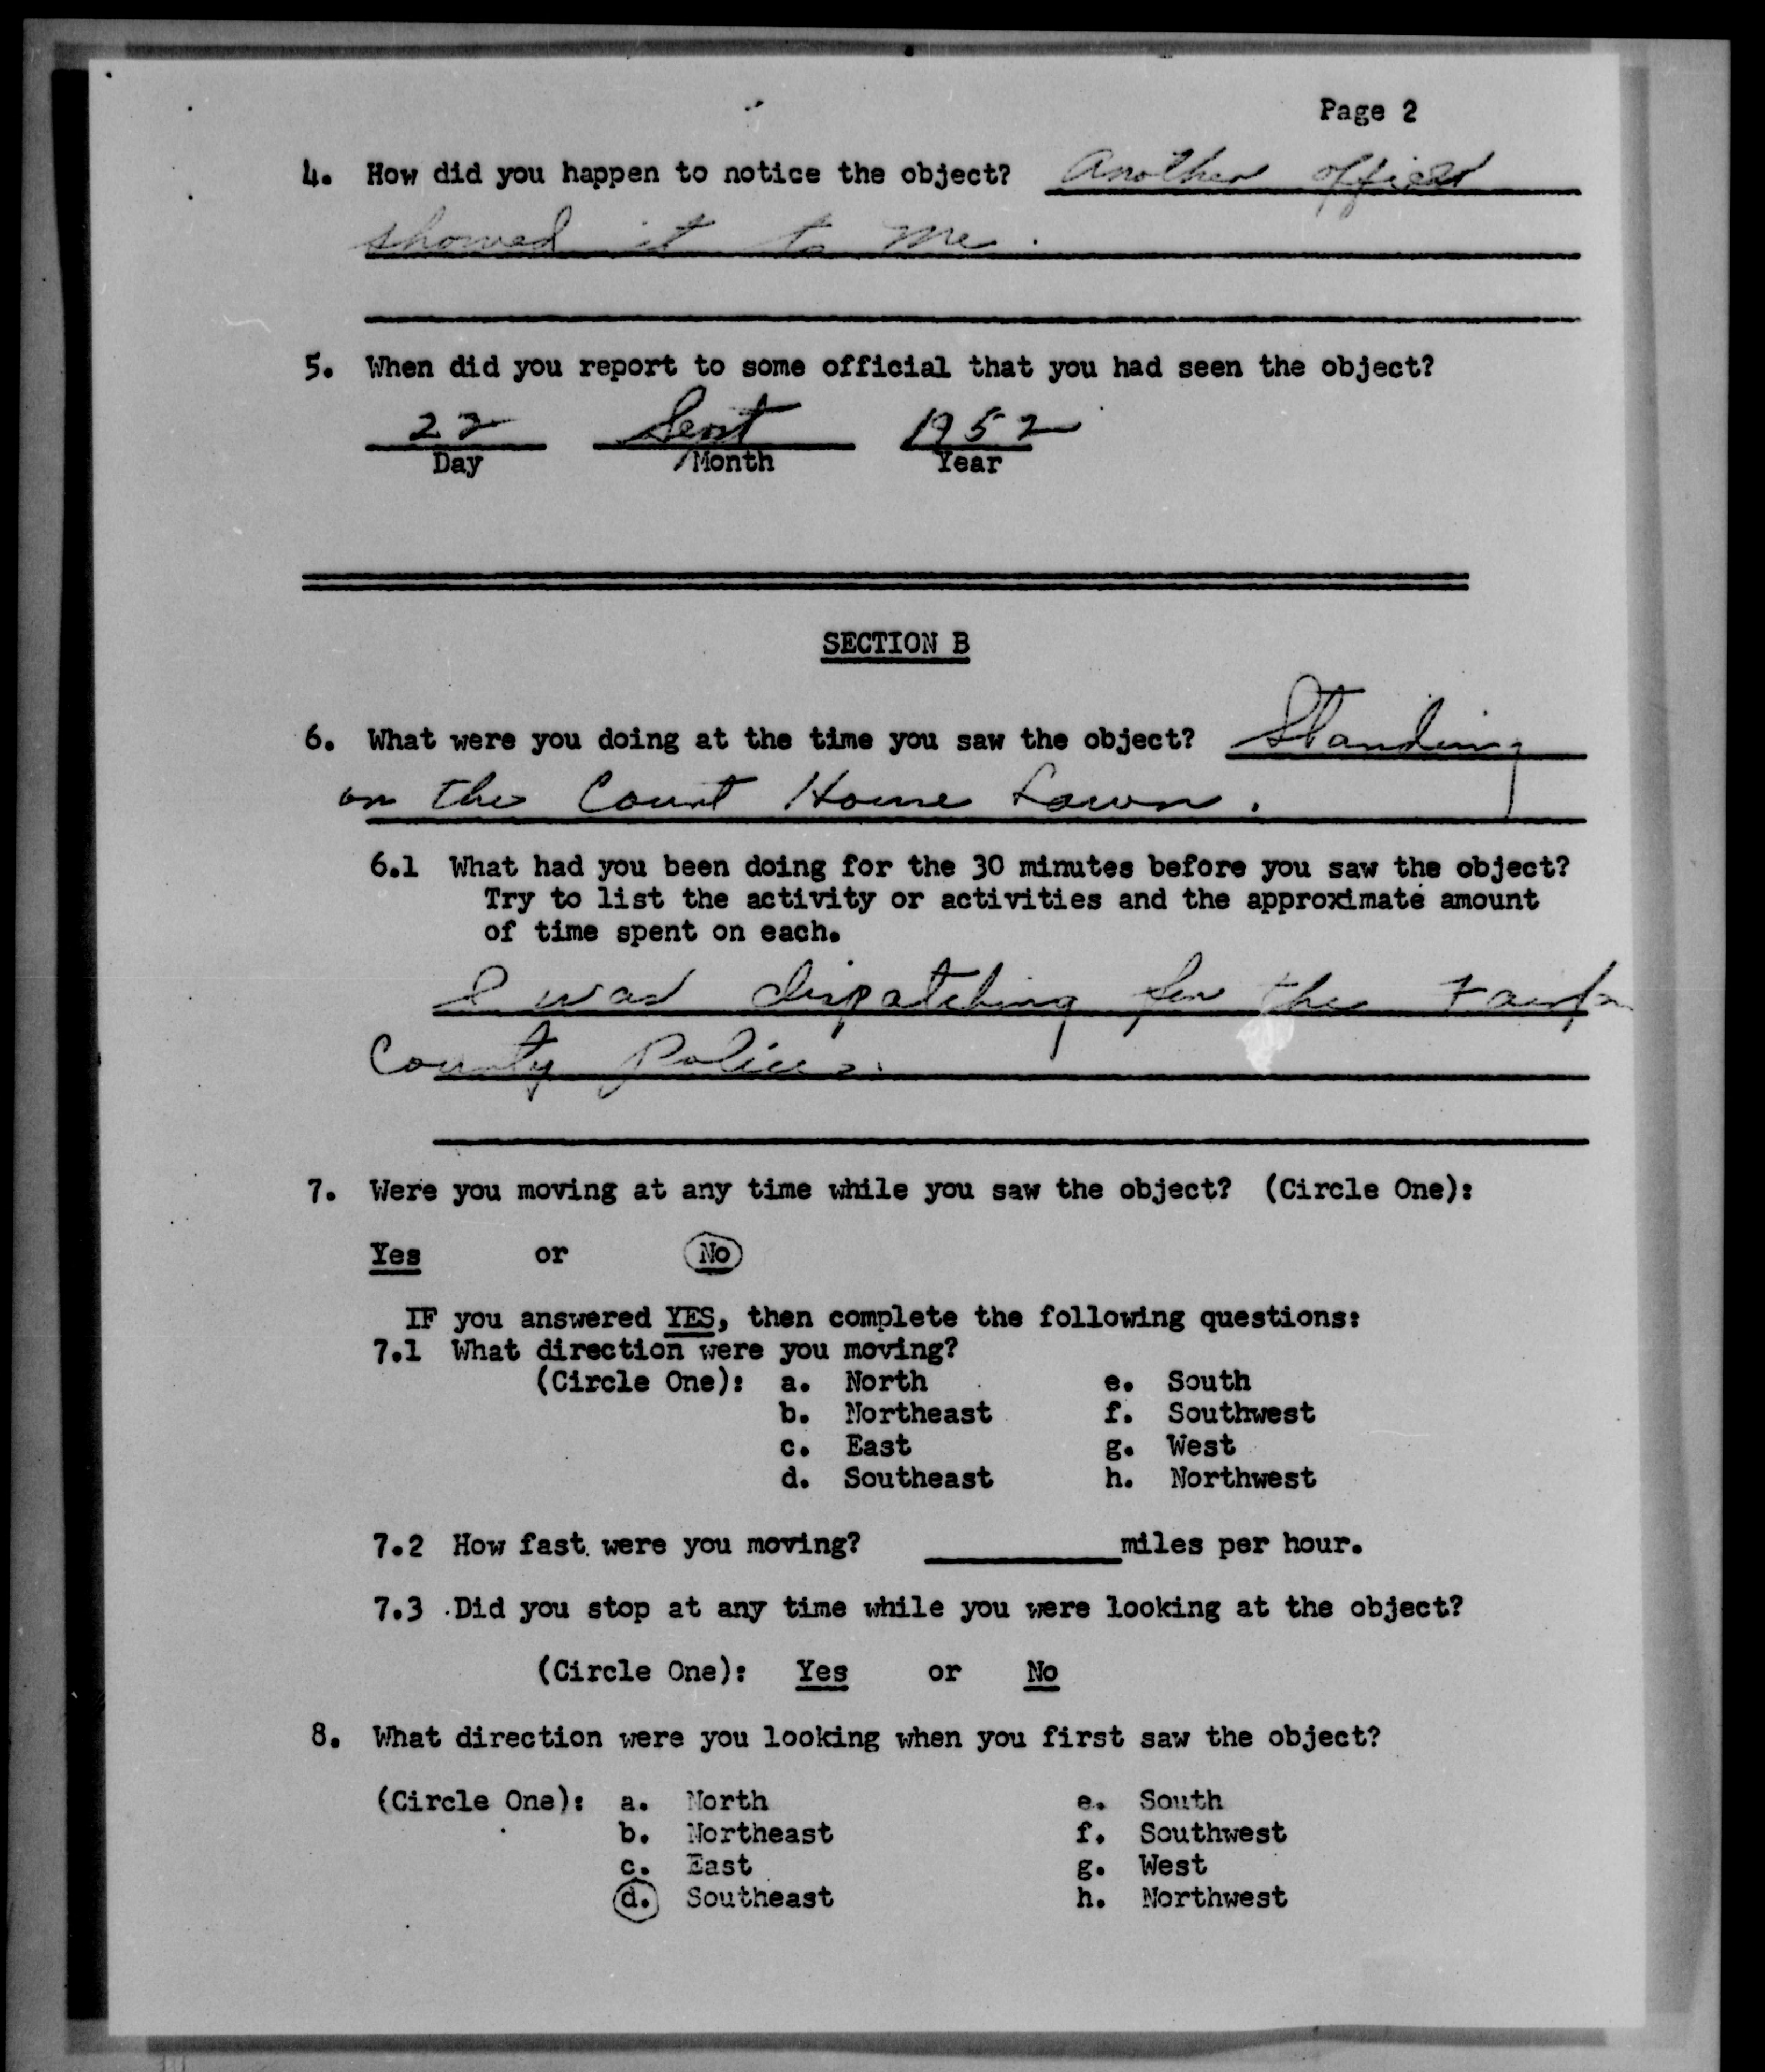 Page 2
4. How did you happen to notice the object? Another officer
showed it to me.
5. When did you report to some official that you had seen the object?
22 Sept 1952
Day Month Year
SECTION B
6. What were you doing at the time you saw the object? Standing
on the Court House Lawn.
6.1 What had you been doing for the 30 minutes before you saw the object?
Try to list the activity or activities and the approximate amount
of time spent on each.
I was dispatching for the Fairfax
County Police.
7. Were you moving at any time while you saw the object? (Circle One):
Yes or No
IF you answered YES, then complete the following questions:
7.1 What direction were you moving?
(Circle One): a. North e. South
b. Northeast f. Southwest
c. East g. West
d. Southeast h. Northwest
7.2 How fast were you moving? miles per hour.
7.3 Did you stop at any time while you were looking at the object?
(Circle One): Yes or No
8. What direction were you looking when you first saw the object?
(Circle One): a. North e. South
b. Northeast f. Southwest
c. East g. West
d. Southeast h. Northwest